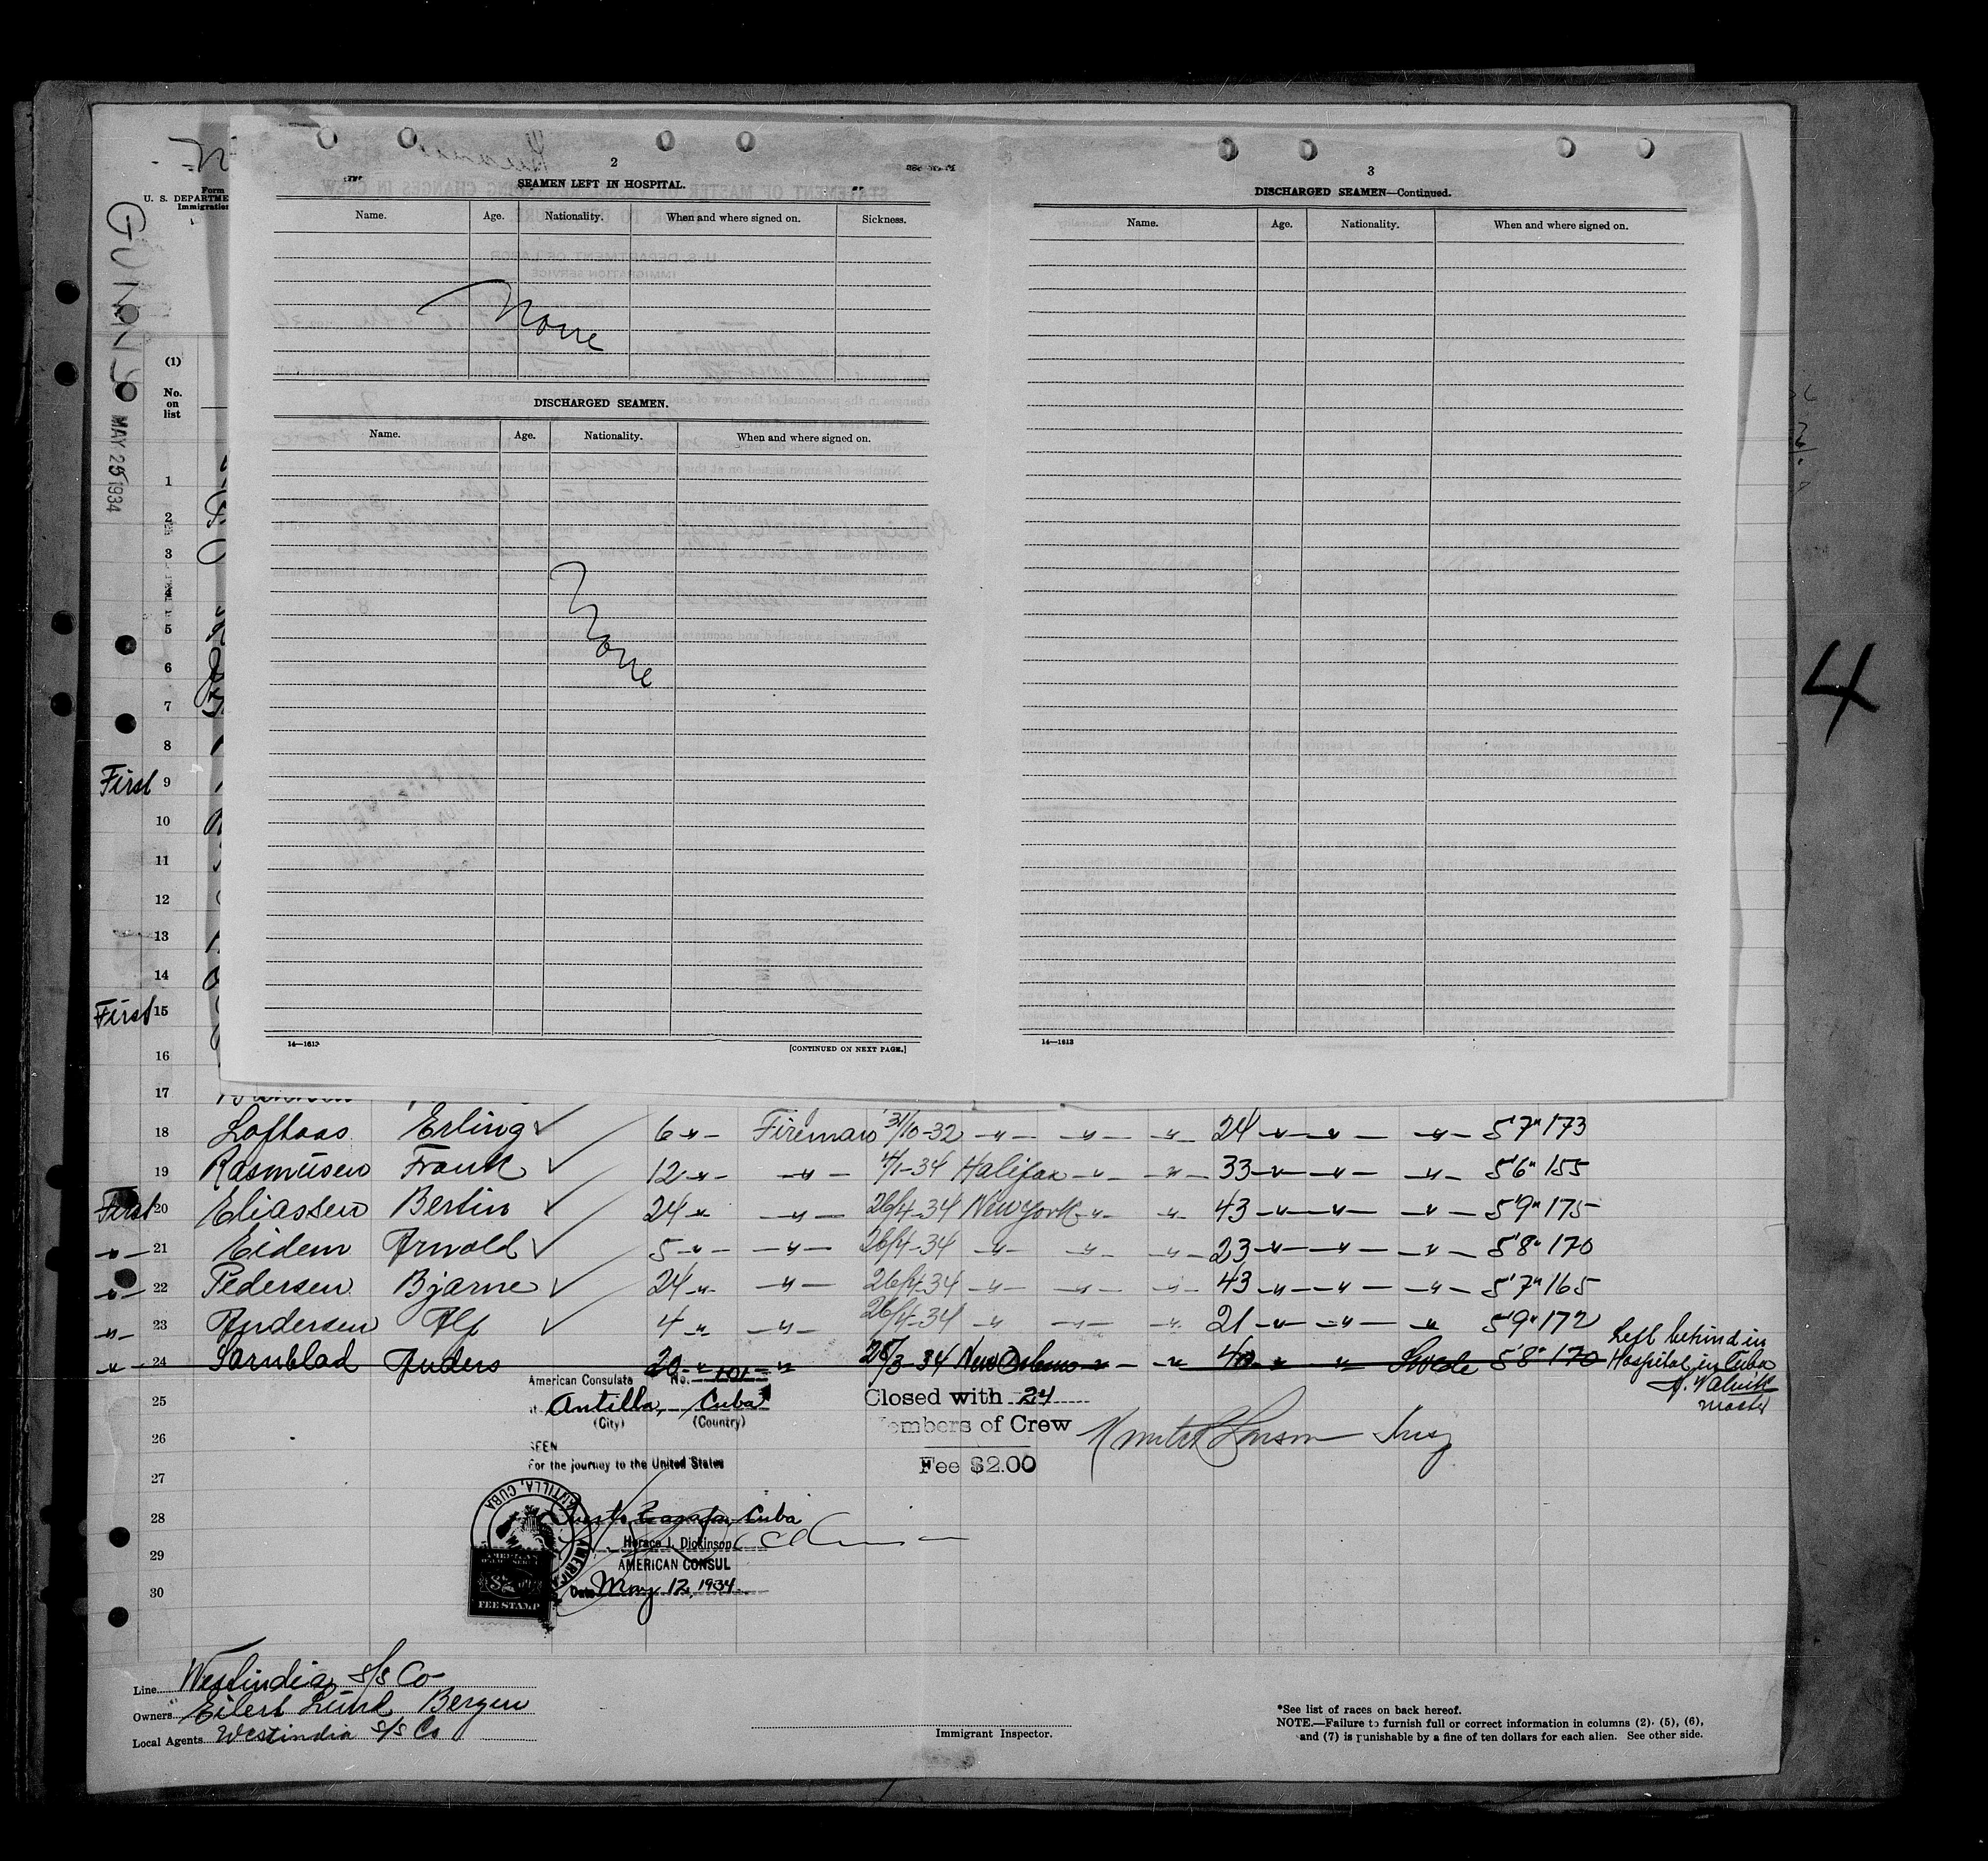 GUNNY
MAY 25 1934
Form
U. S. DEPARTME
Immigration
2
SEAMEN LEFT IN HOSPITAL.
Name. Age. Nationality. When and where signed on. Sickness.
None
DISCHARGED SEAMEN.
Name. Age. Nationality. When and where signed on.
None
14—1613
[CONTINUED ON NEXT PAGE.]
3
DISCHARGED SEAMEN—Continued.
Name. Age. Nationality. When and where signed on.
14—1613
4
(1)
No.
on
list
1
2
3
4
5
6
7
8
First 9
10
11
12
13
14
First 15
16
17
18 Loftaas Erling 6 " Fireman 31/10-32 " " " 24 " " " 5'7" 173
19 Rasmussen Frank 12 " " 4/1-34 Halifax " " 33 " " " 5'6" 155
First 20 Eliassen Bertin 24 " " 26/4-34 New York " " 43 " " " 5'9" 175
" 21 Eidem Arnold 5 " " 26/4-34 " " " 23 " " " 5'8" 170
" 22 Pedersen Bjarne 24 " " 26/4-34 " " " 43 " " " 5'7" 165
" 23 Andersen Alf 4 " " 26/4-34 " " " 21 " " " 5'9" 172
" 24 Sarnblad Anders 20 " " 28/3-34 New Orleans " " 40 " " Swede 5'8" 170
Left behind in
Hospital in Cuba
master
25
26
27
28
29
30
American Consulate No. 101
Antilla, Cuba
(City) (Country)
SEEN
For the journey to the United States
Cuba
Horace J. Dickinson
AMERICAN CONSUL
Date May 12, 1934
ANTILLA, CUBA
AMERICAN
FEE STAMP
Closed with 24
Members of Crew
Fee $2.00
Line Westindia S/S Co
Owners Eilert Lund Bergen
Local Agents Westindia S/S Co
Immigrant Inspector.
*See list of races on back hereof.
NOTE.—Failure to furnish full or correct information in columns (2), (5), (6),
and (7) is punishable by a fine of ten dollars for each alien. See other side.